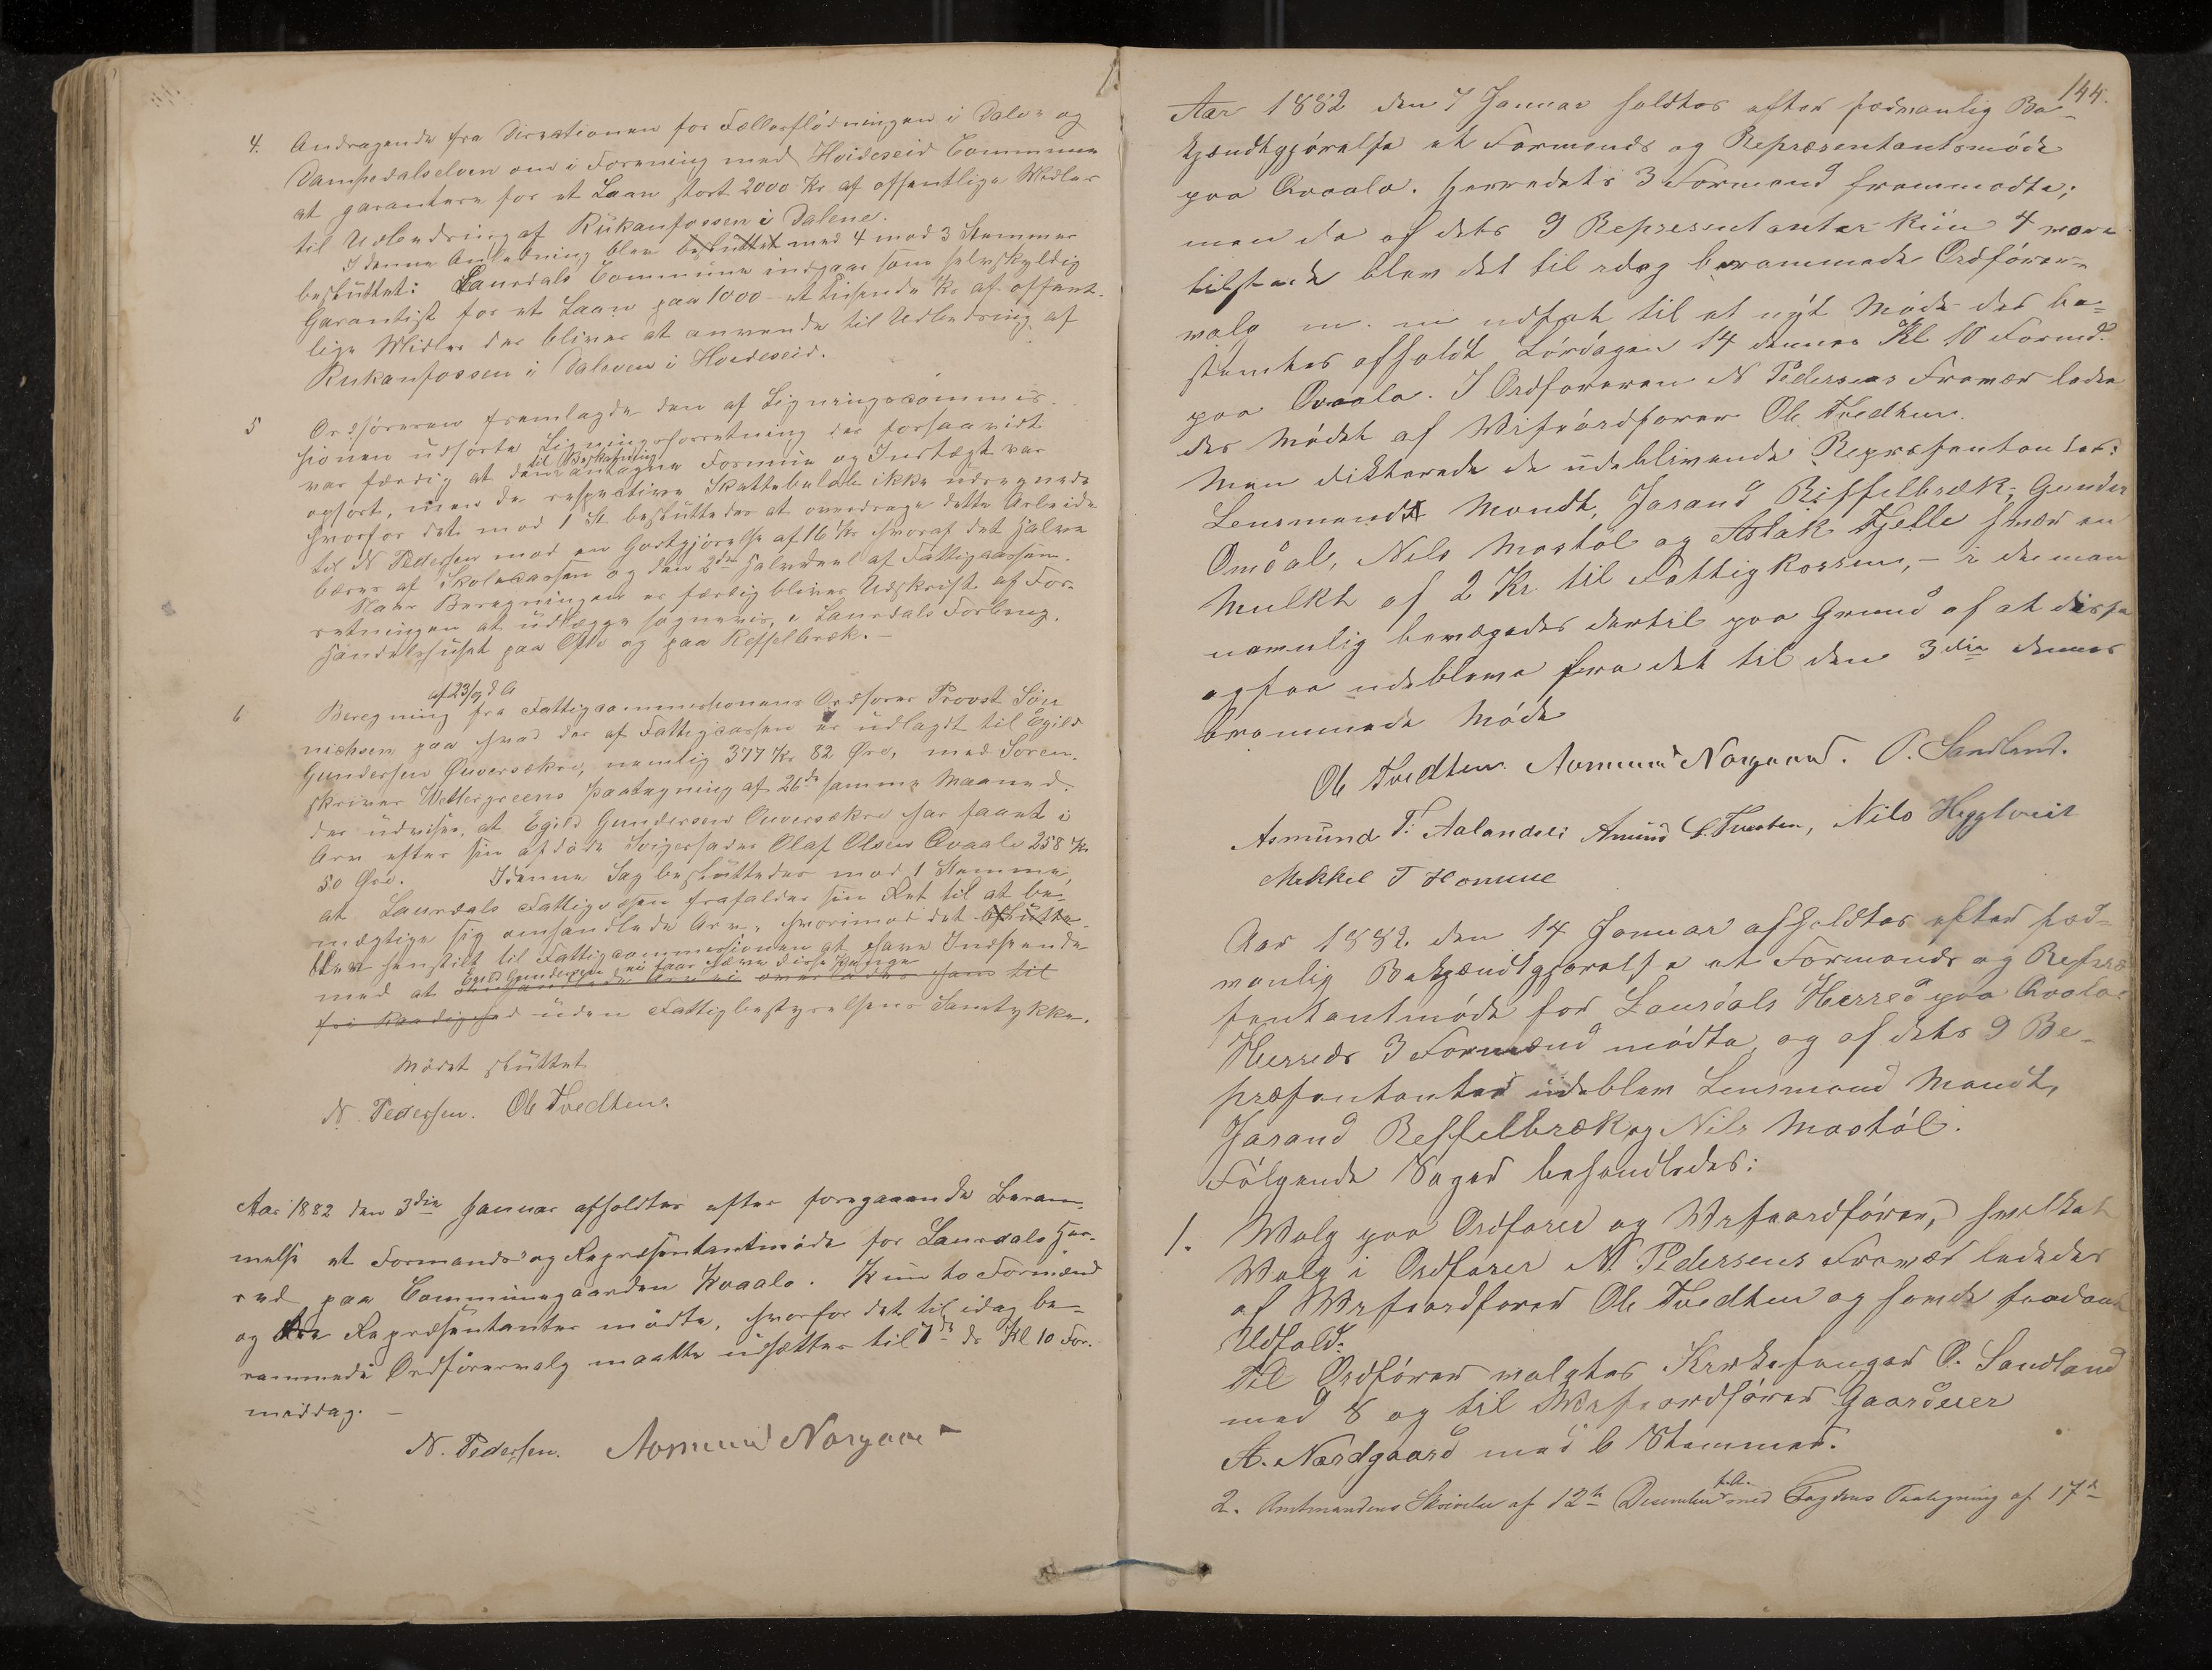 4. Andragende fra Direktionen for Fællesflödningen i Dalen og
Dampedalselven om i Forening med Hvideseid Commune
at garantere for et Laan stort 2000 Kr af offentlige Midler
til Udbedring af Rükanfossen i Dalene.
I denne Anledning blev besluttet med 4 mod 3 Stemmer
besluttet: Laurdals Commune indgaar som selvskyldig
Garantist for et Laan paa 1000 et Tusende Kr af offent-
lige Midler der bliver at anvende til Udbedring af
Rukanfossen i Daleven i Hvideseid.
5 Ordföreren fremlagde den af Ligningscommis-
sionen udförte Ligningsforretning der forsaavidt
var færdig at den til Beskatning antagne Formue og Indtægt var
opfört, men de respective Skattebeløb ikke udregnede
hvorfor det mod 1 St. besluttedes at overdrage dette Arbeide
til N Pedersen mod en Godtgjörelse af 16 Kr hvoraf det halve
bæres af Skolecassen og den 2den Halvdeel af Fattigcassen.
Naar Beregningen er færdig bliver Udskrift af For-
retningen at udlægge sognevis, i Laurdals Forbrug.
Handelshuset paa Ofte og paa Reffelbræk. -
6 Beregning af 23/9 d A fra Fattigcommissionens Ordforer Provst Sön
nichsen paa hvad der af Fattigcassen er udlagdt til Egild
Gundersen Quversækre, nemlig 377 Kr 82 Øre, med Soren-
skriver Wettergreens Paategning af 26de samme Maaned.
der udviser, at Egild Gundersen Quversækre har faaet i
Arv efter sin afdöde Svigerfader Olaf Olsen Qvaale 258 Kr
50 Øre. I denne Sag besluttedes mod 1 Stemme,
at Laurdals Fattigvæsen frafalder sin Ret til at be-
mægtige sig omhandlede Arv, hvorimod det besluttedes
blev henstilt til Fattigcommissionen at have Indseende
med at Egild Gundersen ei faar hæve disse Penge
fri Raadighed uden Fattigbestyrelsens Samtykke.
Mödet sluttet
N. Pedersen. Ole Tvedten.
Aar 1882 den 3die Januar afholdtes efter foregaaende Beram-
melse et Formands og Repræsentantmöde for Laurdals Her-
red paa Communegaarden Kvaale. Kun to Formænd
og tre Repræsentanter mödte, hvorfor det til idag be-
rammede Ordförervalg maatte udsættes til 7de ds Kl 10 For-
middag. -
N. Pedersen. Aamund Norgaard
144.
Aar 1882 den 7 Januar holdtes efter sædvanlig Be-
kjændtgjörelse et Formands og Repræsentantsmöde
paa Qvaale. Herredets 3 Formænd fremmødte;
men da af dets 9 Representanter kun 4 vare
tilstede blev det til idag berammede Ordförer-
valg m. m udsat til et nyt Möde der be-
stemtes afholdt Lördagen 14 dennes Kl 10 Formd.
paa Qvaale. I Ordføreren N Pedersens Fravær lede
des Mödet af Viseordfører Ole Tvedten.
Man dikterede de udeblivende Repræsentanter:
Lensmand Mandt, Jarand Riffelbræk, Gunder
Omdal, Nils Mostøl og Aslak Kjelle hver en
Mulkt af 2 Kr. til Fattigkassen, - i det man
navnlig bevægedes dertil paa Grund af at disse
ogsaa udebleve fra det til den 3die dennes
berammede Möde
Ole Tvedten. Aamund Norgaard. O. Sandland.
Asmund T. Aalandsli Amund C. Tveiten, Nils Hegglveit
Mikkel T Homme
Aar 1882 den 14 Januar afholdtes efter sæd-
vanlig Bekjændtgjørelse et Formands og Repræ
sentantmöde for Laurdals Herred paa Qvale.
Herreds 3 Formænd mödte, og af dets 9 Re-
præsentanter udeblev Lensmand Mandt,
Jarand Reffelbræk og Nils Mostöl.
Fölgende Sager behandledes:
1. Valg paa Ordforer og Viseordförer, hvilket
Valg i Ordforer N Pedersens Fravær lededes
af Viseordforer Ole Tvedten og havde saadant
Udfald:
Til Ordförer valgtes Kirkesanger O. Sandland
med 8 og til Viseordförer Gaardeier
A. Nordgaard med 6 Stemmer.
2. Amtmandens Skrivelse af 12te December f.A. med Fogdens Paategning af 17de